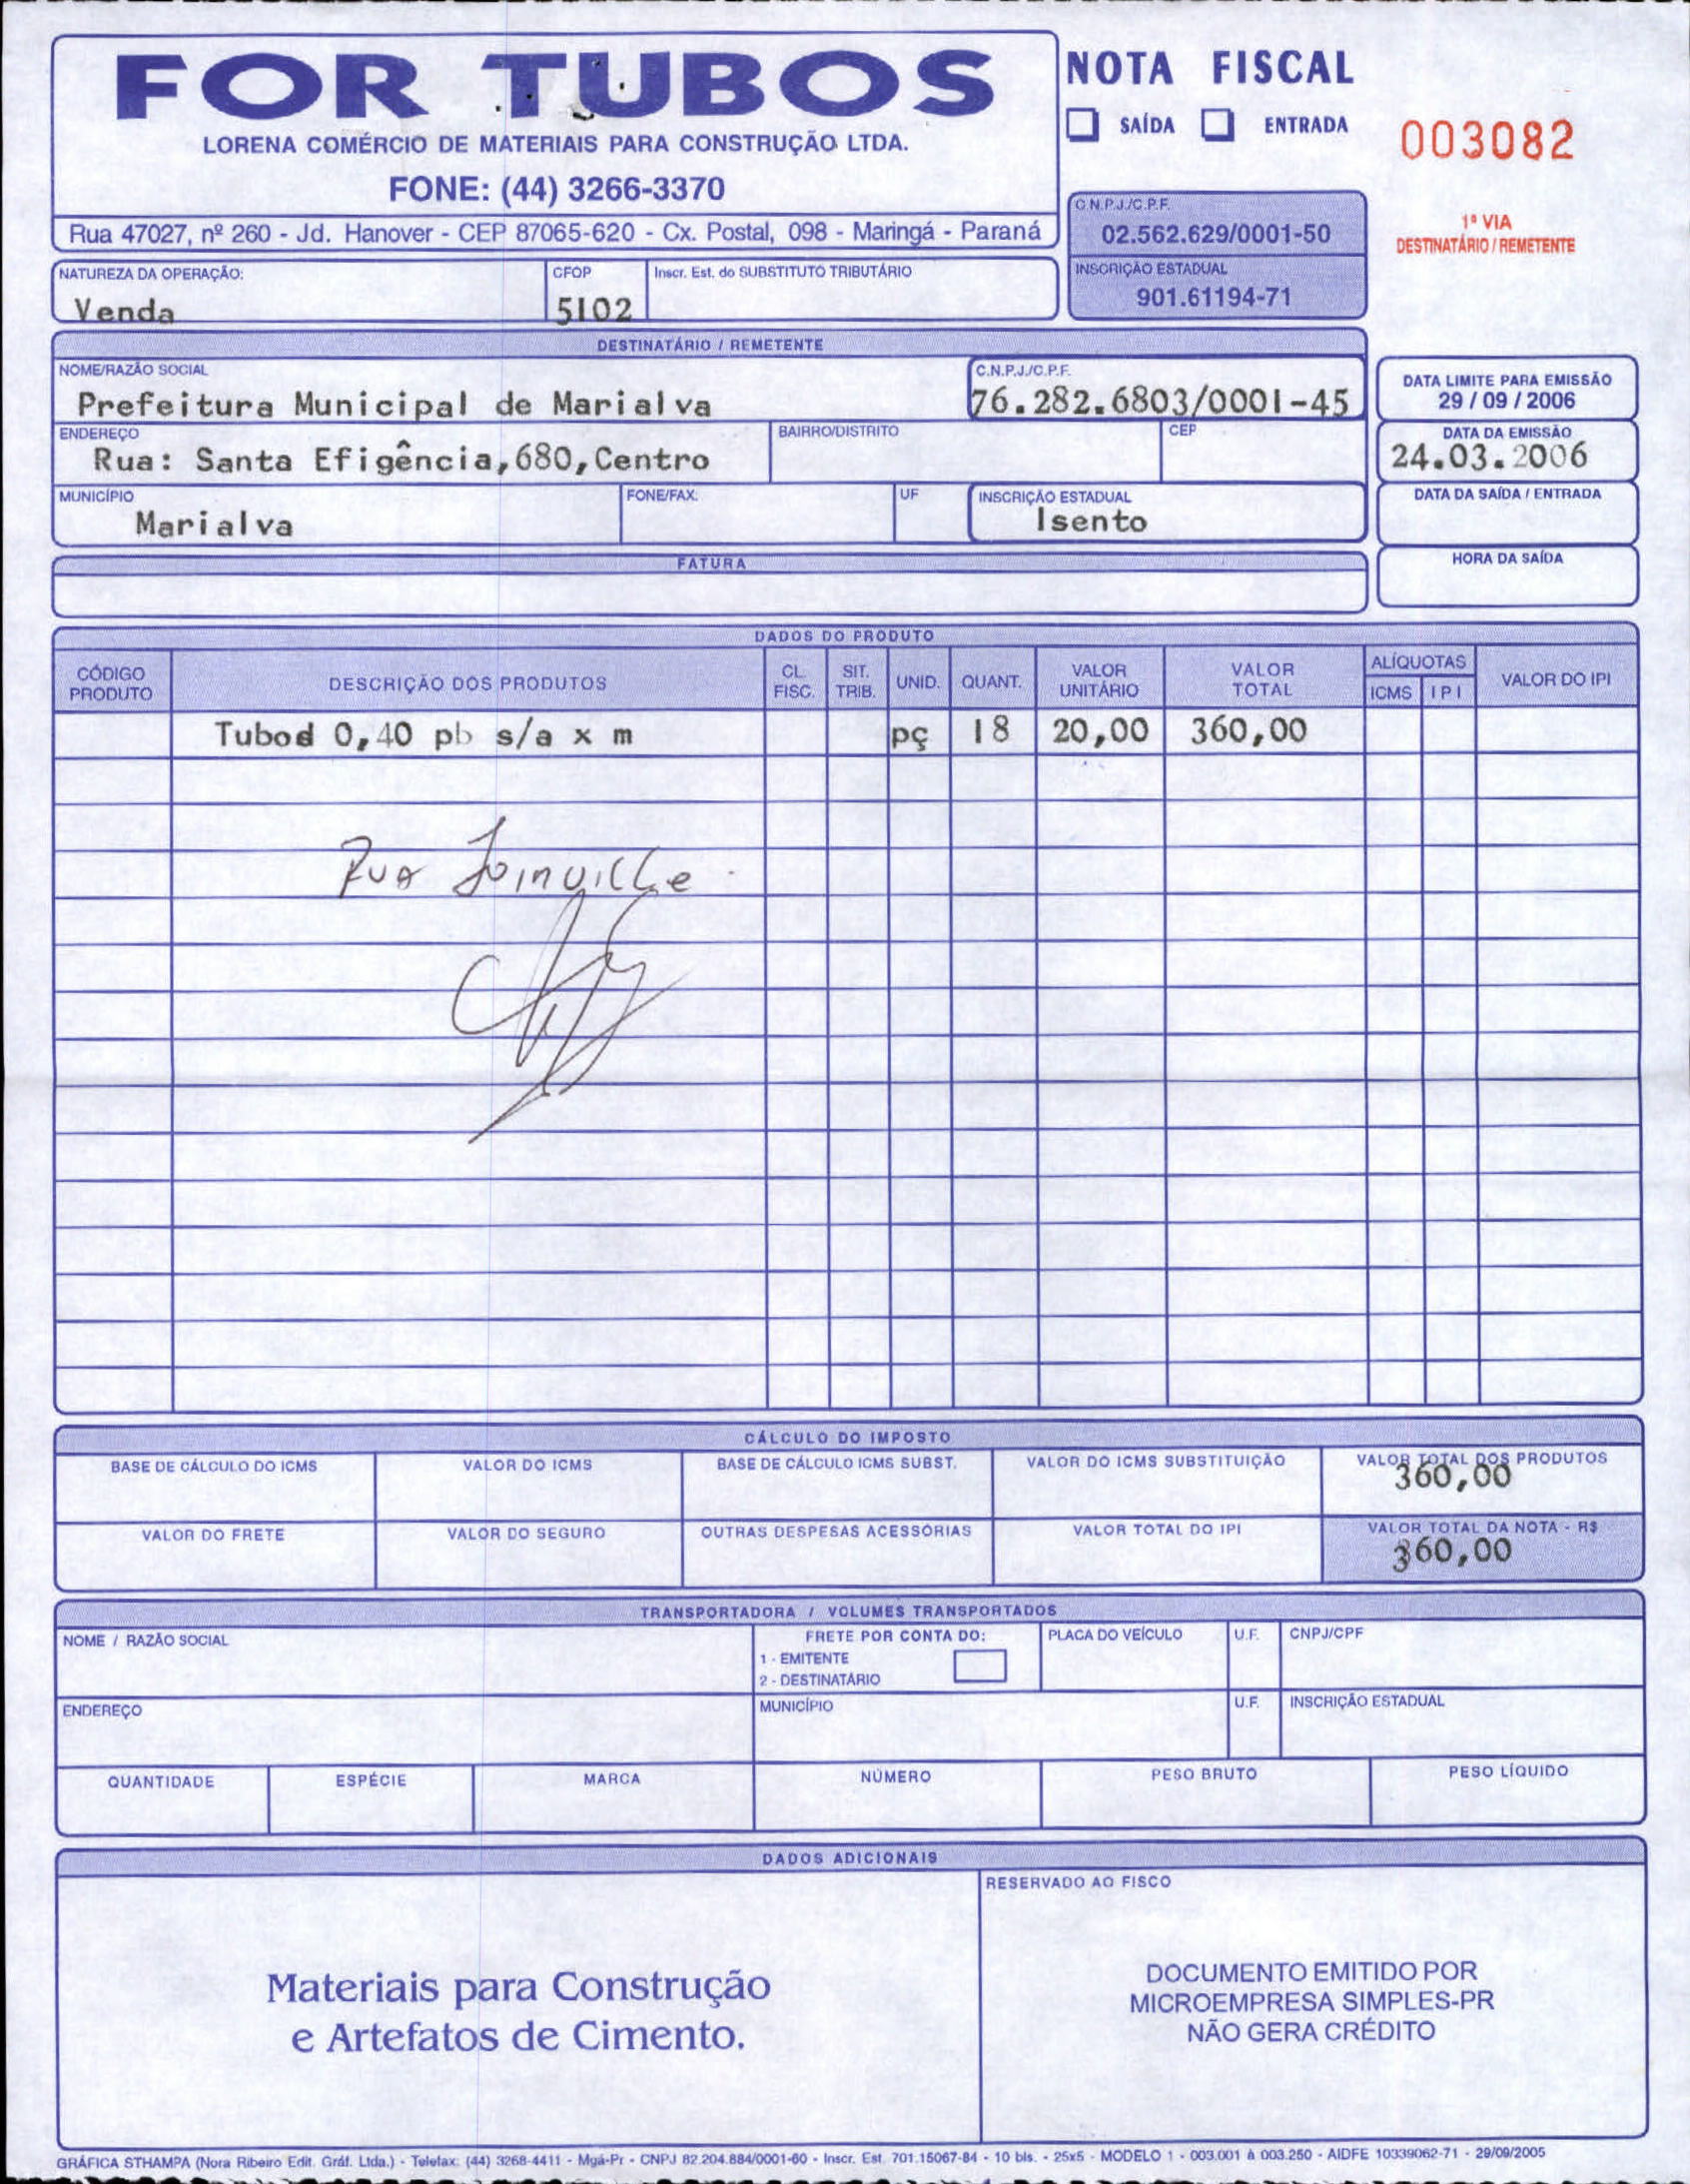 FOR TUBOS
LORENA COMÉRCIO DE MATERIAIS PARA CONSTRUÇÃO LTDA.
FONE: (44) 3266-3370
Rua 47027, nº 260 - Jd. Hanover - CEP 87065-620 - Cx. Postal, 098 - Maringá - Paraná
NOTA FISCAL
SAÍDA ENTRADA
003082
1ª VIA
DESTINATÁRIO / REMETENTE
C.N.P.J./C.P.F.
02.562.629/0001-50
INSCRIÇÃO ESTADUAL
901.61194-71
NATUREZA DA OPERAÇÃO: CFOP Inscr. Est. do SUBSTITUTO TRIBUTÁRIO
Venda 5102
DESTINATÁRIO / REMETENTE
NOME/RAZÃO SOCIAL C.N.P.J./C.P.F.
Prefeitura Municipal de Marialva 76.282.6803/0001-45
ENDEREÇO BAIRRO/DISTRITO CEP
Rua: Santa Efigência,680,Centro
MUNICÍPIO FONE/FAX: UF INSCRIÇÃO ESTADUAL
Marialva Isento
DATA LIMITE PARA EMISSÃO
29 / 09 / 2006
DATA DA EMISSÃO
24.03.2006
DATA DA SAÍDA / ENTRADA
HORA DA SAÍDA
FATURA
DADOS DO PRODUTO
CÓDIGO PRODUTO DESCRIÇÃO DOS PRODUTOS CL. FISC. SIT. TRIB. UNID. QUANT. VALOR UNITÁRIO VALOR TOTAL ALÍQUOTAS ICMS IPI VALOR DO IPI
Tubod 0,40 pb s/a x m pç 18 20,00 360,00
Rua Joinville
CÁLCULO DO IMPOSTO
BASE DE CÁLCULO DO ICMS VALOR DO ICMS BASE DE CÁLCULO ICMS SUBST. VALOR DO ICMS SUBSTITUIÇÃO VALOR TOTAL DOS PRODUTOS
360,00
VALOR DO FRETE VALOR DO SEGURO OUTRAS DESPESAS ACESSÓRIAS VALOR TOTAL DO IPI VALOR TOTAL DA NOTA - R$
360,00
TRANSPORTADORA / VOLUMES TRANSPORTADOS
NOME / RAZÃO SOCIAL FRETE POR CONTA DO: PLACA DO VEÍCULO U.F. CNPJ/CPF
1 - EMITENTE
2 - DESTINATÁRIO
ENDEREÇO MUNICÍPIO U.F. INSCRIÇÃO ESTADUAL
QUANTIDADE ESPÉCIE MARCA NÚMERO PESO BRUTO PESO LÍQUIDO
DADOS ADICIONAIS
RESERVADO AO FISCO
Materiais para Construção
e Artefatos de Cimento.
DOCUMENTO EMITIDO POR
MICROEMPRESA SIMPLES-PR
NÃO GERA CRÉDITO
GRÁFICA STHAMPA (Nora Ribeiro Edit. Gráf. Ltda.) - Telefax: (44) 3268-4411 - Mgá-Pr - CNPJ 82.204.884/0001-60 - Inscr. Est. 701.15067-84 - 10 bls. - 25x5 - MODELO 1 - 003.001 à 003.250 - AIDFE 10339062-71 - 29/09/2005